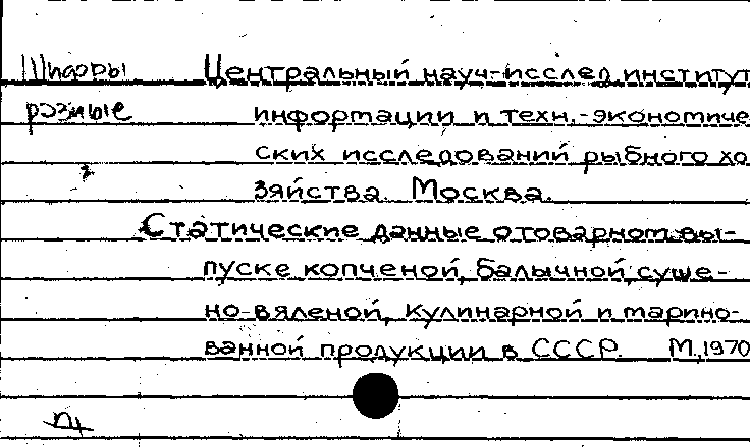 Шифры Центральный науч-исслед. институт
разные информации и техн.-экономиче
ских исследований рыбного хо
зяйства. Москва.
Статические данные о товарном вы-
пуске копченой, балычной, суше-
но-вяленой, кулинарной и марино-
ванной продукции в СССР. М, 1970